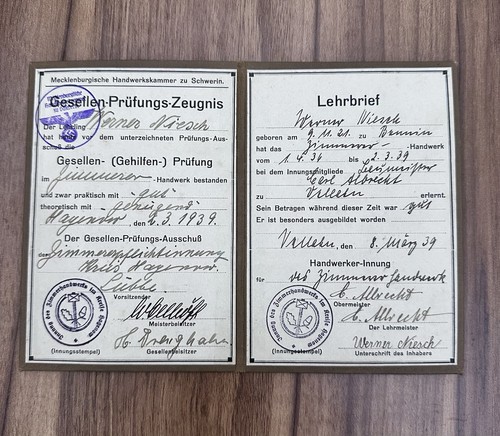 Mecklenburgische Handwerkskammer zu Schwerin.
Gesellen-Prüfungs-Zeugnis
Der Lehrling Werner Niesch
hat heute vor dem unterzeichneten Prüfungs-Aus-
schuß die
Gesellen- (Gehilfen-) Prüfung
im Zimmerer-Handwerk bestanden
und zwar praktisch mit „gut“
theoretisch mit „genügend“
Hagenow, den 6.3.1939.
Der Gesellen-Prüfungs-Ausschuß
der Zimmererpflichtinnung
Kreis Hagenow.
Lübbe
Vorsitzender
Meisterbeisitzer
(Innungsstempel)
Gesellenbeisitzer
Innung des Zimmerhandwerks im Kreise Hagenow
Lehrbrief
Werner Niesch
geboren am 9.11.21. zu
hat das Zimmerer-Handwerk
vom 1.4.36 bis 2.3.39
bei dem Innungsmitgliede Baumeister
Carl Albrecht
zu Vellahn erlernt.
Sein Betragen während dieser Zeit war gut
Er ist besonders ausgebildet worden
Vellahn, den 8. März 39
Handwerker-Innung
für des Zimmerer Handwerk
C. Albrecht
Obermeister
C. Albrecht
Der Lehrmeister
Werner Niesch
(Innungsstempel)
Unterschrift des Inhabers
Innung des Zimmerhandwerks im Kreise Hagenow